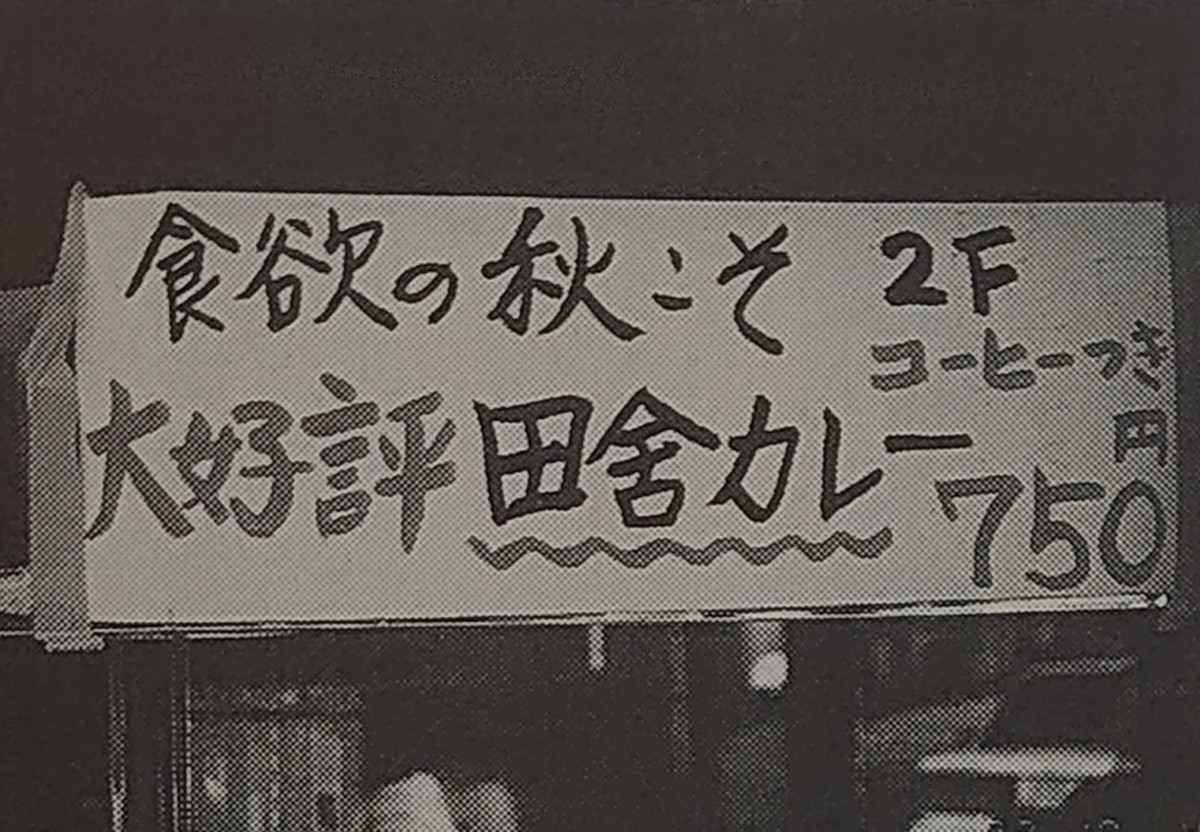 食欲の秋こそ 2F
コーヒーつき
大好評 田舎カレー 750円